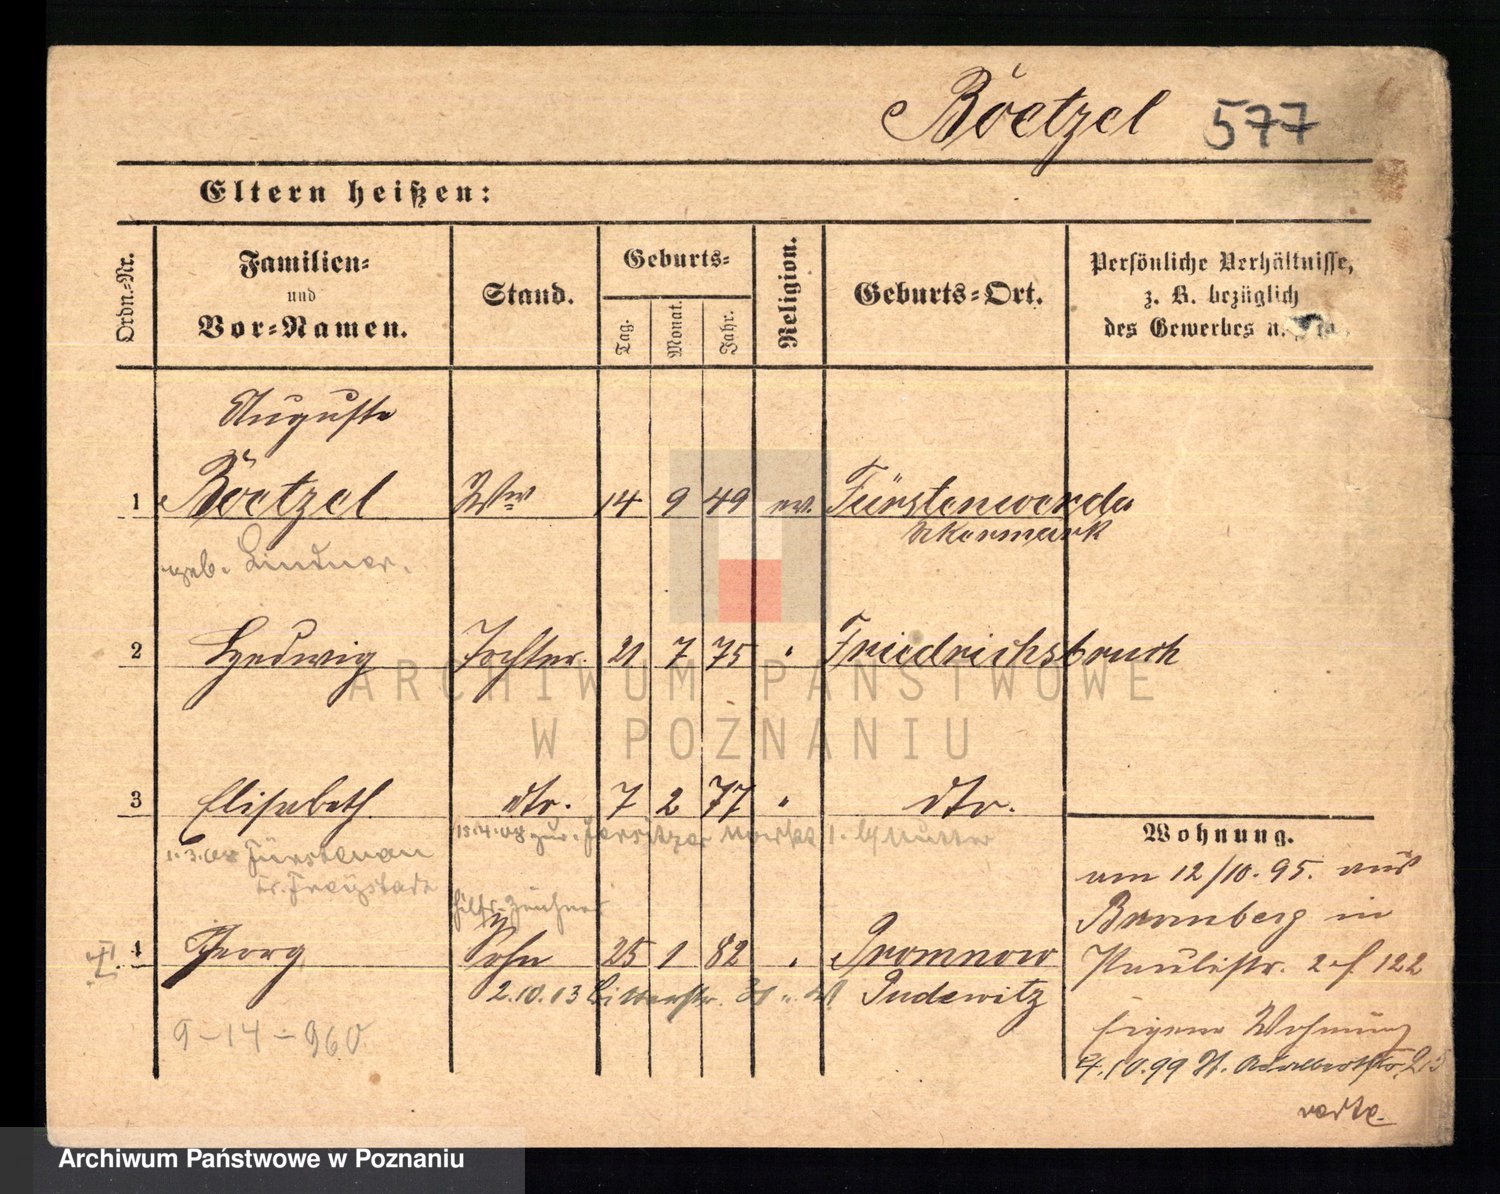 Böetzel 577
Eltern heißen:
Ordn.-Nr.
Familien-
und
Vor-Namen.
Stand.
Geburts-
Tag.
Monat.
Jahr.
Religion.
Geburts-Ort.
Persönliche Verhältnisse,
z. B. bezüglich
des Gewerbes u.
Auguste
1 Böetzel Ww 14 9 49 ev. Fürstenwerder
Ukermark
geb. Lindner.
2 Hedwig Tochter. 21 7 75 " Friedrichsbruch
3 Elisabeth. dto. 7 2 77 " dto.
15.4.08 zur. Jersitzer
1.3.08 Fürstenau
Kr. Freystadt
Hilfs-Zeichner
4 Georg Sohn 25 1 82 " Promnow
2.10.13 Pudewitz
9-14-960
Wohnung.
am 12/10.95. aus
Bromberg in
Paulistr. 2 f 122
Eigene Wohnung
4.10.99 St. Adalbertstr. 25
verte.
ARCHIWUM PAŃSTWOWE
W POZNANIU
Archiwum Państwowe w Poznaniu